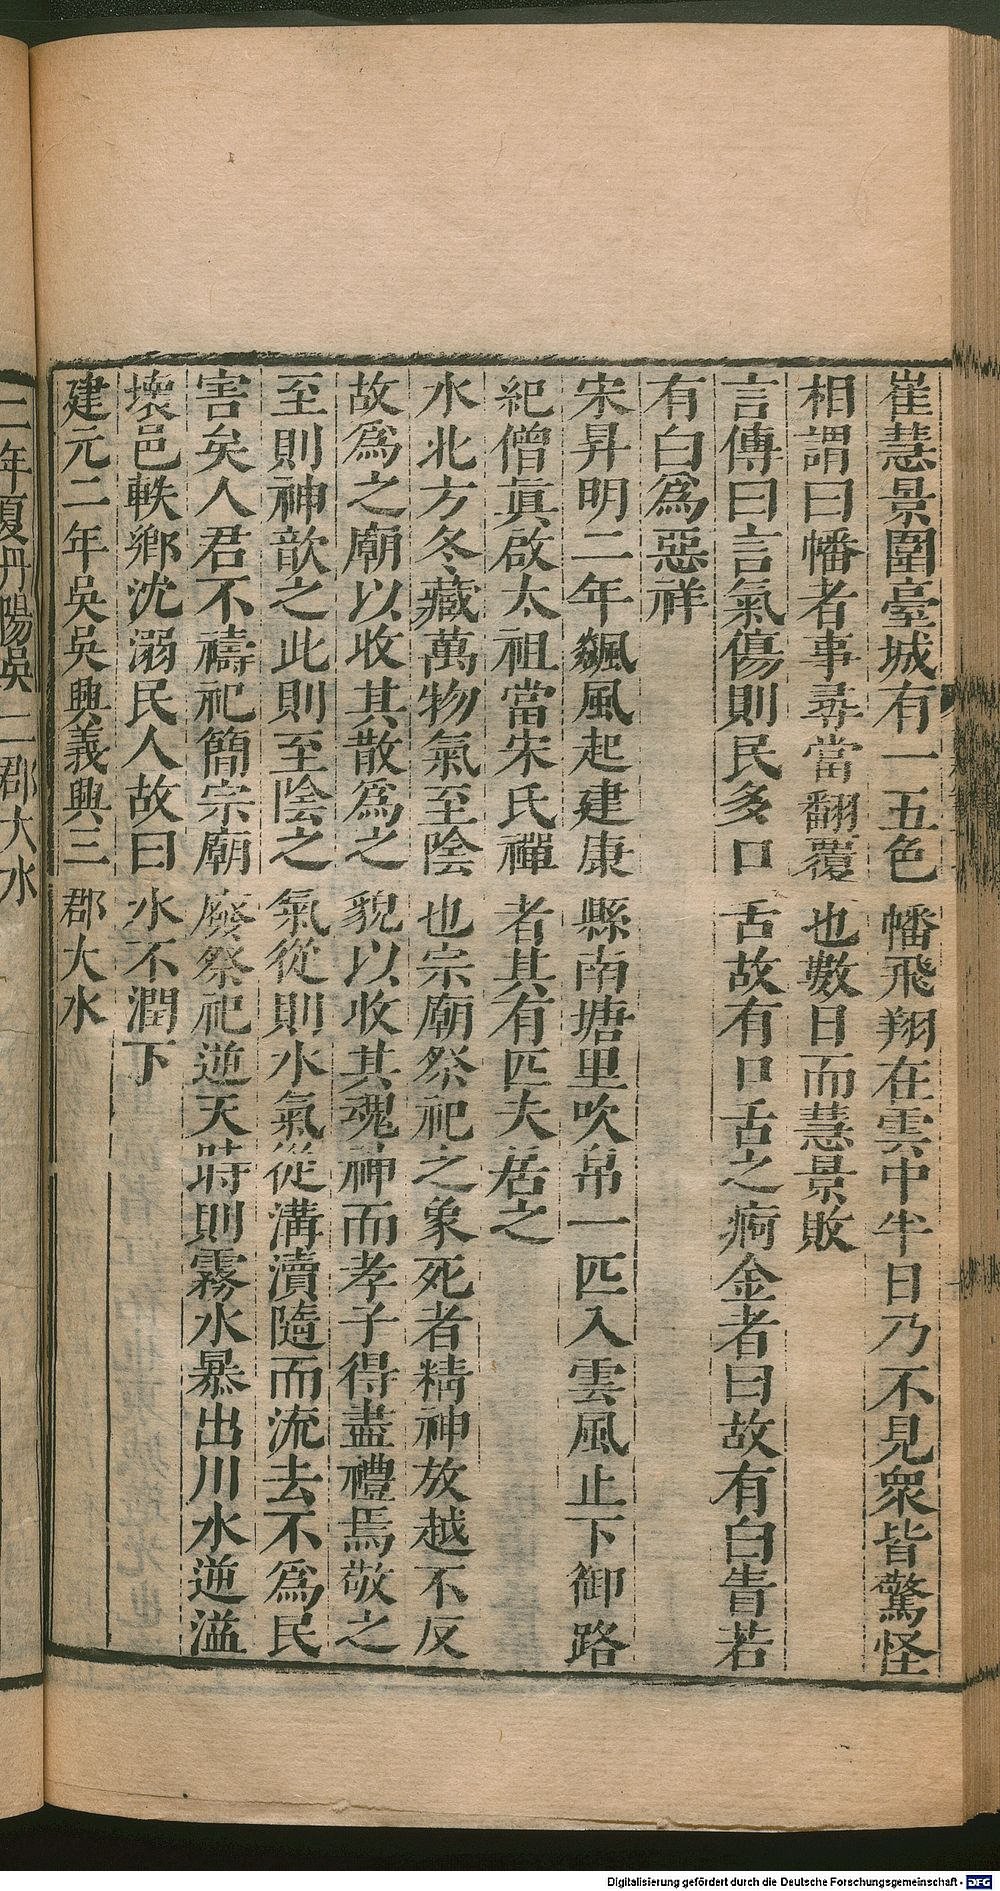 崔慧景圍臺城有一五色幡飛翔在雲中半日乃不見衆皆驚怪
相謂曰幡者事尋當翻覆也數日而慧景敗
言傳曰言氣傷則民多口舌故有口舌之痾金者曰故有白眚若
有白爲惡祥
宋昇明二年飈風起建康縣南塘里吹帛一匹入雲風止下御路
紀僧眞啟太祖當宋氏禪者其有匹夫居之
水北方冬藏萬物氣至陰也宗廟祭祀之象死者精神放越不反
故爲之廟以收其散爲之貌以收其魂神而孝子得盡禮焉敬之
至則神歆之此則至陰之氣從則水氣從溝瀆隨而流去不爲民
害矣人君不禱祀簡宗廟廢祭祀逆天時則霧水暴出川水逆溢
壞邑軼鄉沈溺民人故曰水不潤下
建元二年吳吳興義興三郡大水
二年夏丹陽吳二郡大水
Digitalisierung gefördert durch die Deutsche Forschungsgemeinschaft - DFG